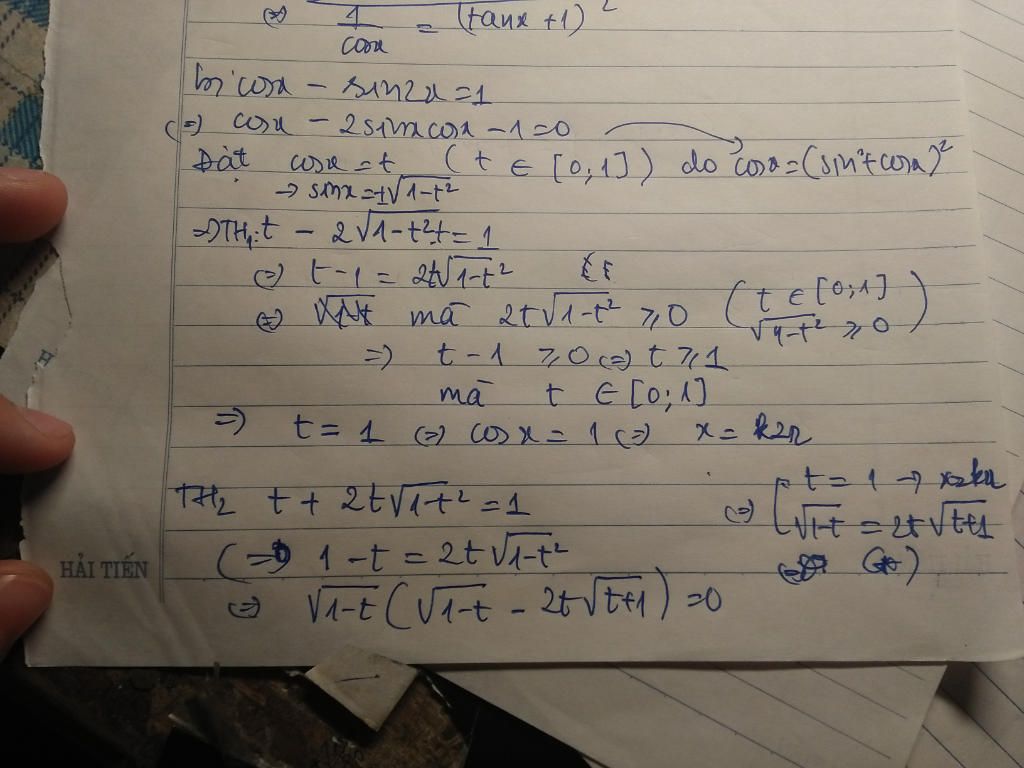 ⇔ 1/cosx = (tanx+1)²
b, cosx - sin2x = 1
⇔ cosx - 2sinxcosx - 1 = 0
Đặt cosx = t (t ∈ [0;1]) do cosx = (sinx+cosx)²
→ sinx = ±√(1-t²)
⇒ TH₁: t - 2√(1-t²).t = 1
⇔ t - 1 = 2t√(1-t²)
mà 2t√(1-t²) ⩾ 0 (t ∈ [0;1] √(1-t²) ⩾ 0)
⇒ t - 1 ⩾ 0 ⇔ t ⩾ 1
mà t ∈ [0;1]
⇒ t = 1 ⇔ cosx = 1 ⇔ x = k2π
TH₂ t + 2t√(1-t²) = 1
⇔ 1 - t = 2t√(1-t²)
⇔ √(1-t) (√(1-t) - 2t√(t+1)) = 0
⇔ [ t = 1 →
√(1-t) = 2t√(t+1)
HẢI TIẾN